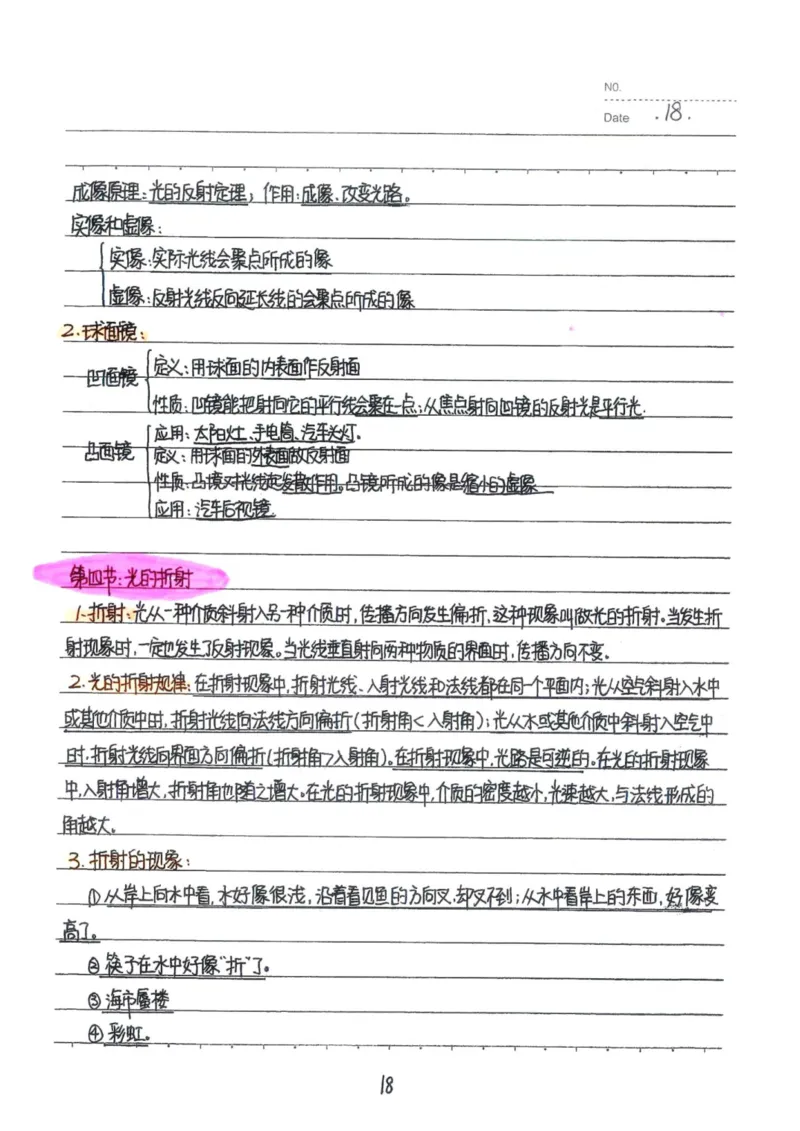 NO.
Date .18.
成像原理:光的反射定理;作用:成像、改变光路。
实像和虚像:
实像:实际光线会聚点所成的像
虚像:反射光线反向延长线的会聚点所成的像
2.球面镜:
凹面镜
定义:用球面的内表面作反射面
性质:凹镜能把射向它的平行线会聚在一点;从焦点射向凹镜的反射光是平行光.
应用:太阳灶、手电筒、汽车头灯。
凸面镜
定义:用球面的外表面做反射面
性质:凸镜对光线起发散作用。凸镜所成的像是缩小的虚像
应用:汽车后视镜
第四节:光的折射
1.折射:光从一种介质斜射入另一种介质时,传播方向发生偏折,这种现象叫做光的折射。当发生折
射现象时,一定也发生了反射现象。当光线垂直射向两种物质的界面时,传播方向不变.
2.光的折射规律:在折射现象中,折射光线、入射光线和法线都在同一个平面内;光从空气斜射入水中
或其他介质中时,折射光线向法线方向偏折(折射角<入射角);光从水或其他介质中斜射入空气中
时.折射光线向界面方向偏折(折射角>入射角)。在折射现象中,光路是可逆的。在光的折射现象
中,入射角增大,折射角也随之增大。在光的折射现象中,介质的密度越小,光速越大,与法线形成的
角越大。
3.折射的现象:
①从岸上向水中看,水好像很浅,沿着看见鱼的方向叉.却叉不到;从水中看岸上的东西,好像变
高了。
②筷子在水中好像“折”了。
③海市蜃楼
④彩虹。
18